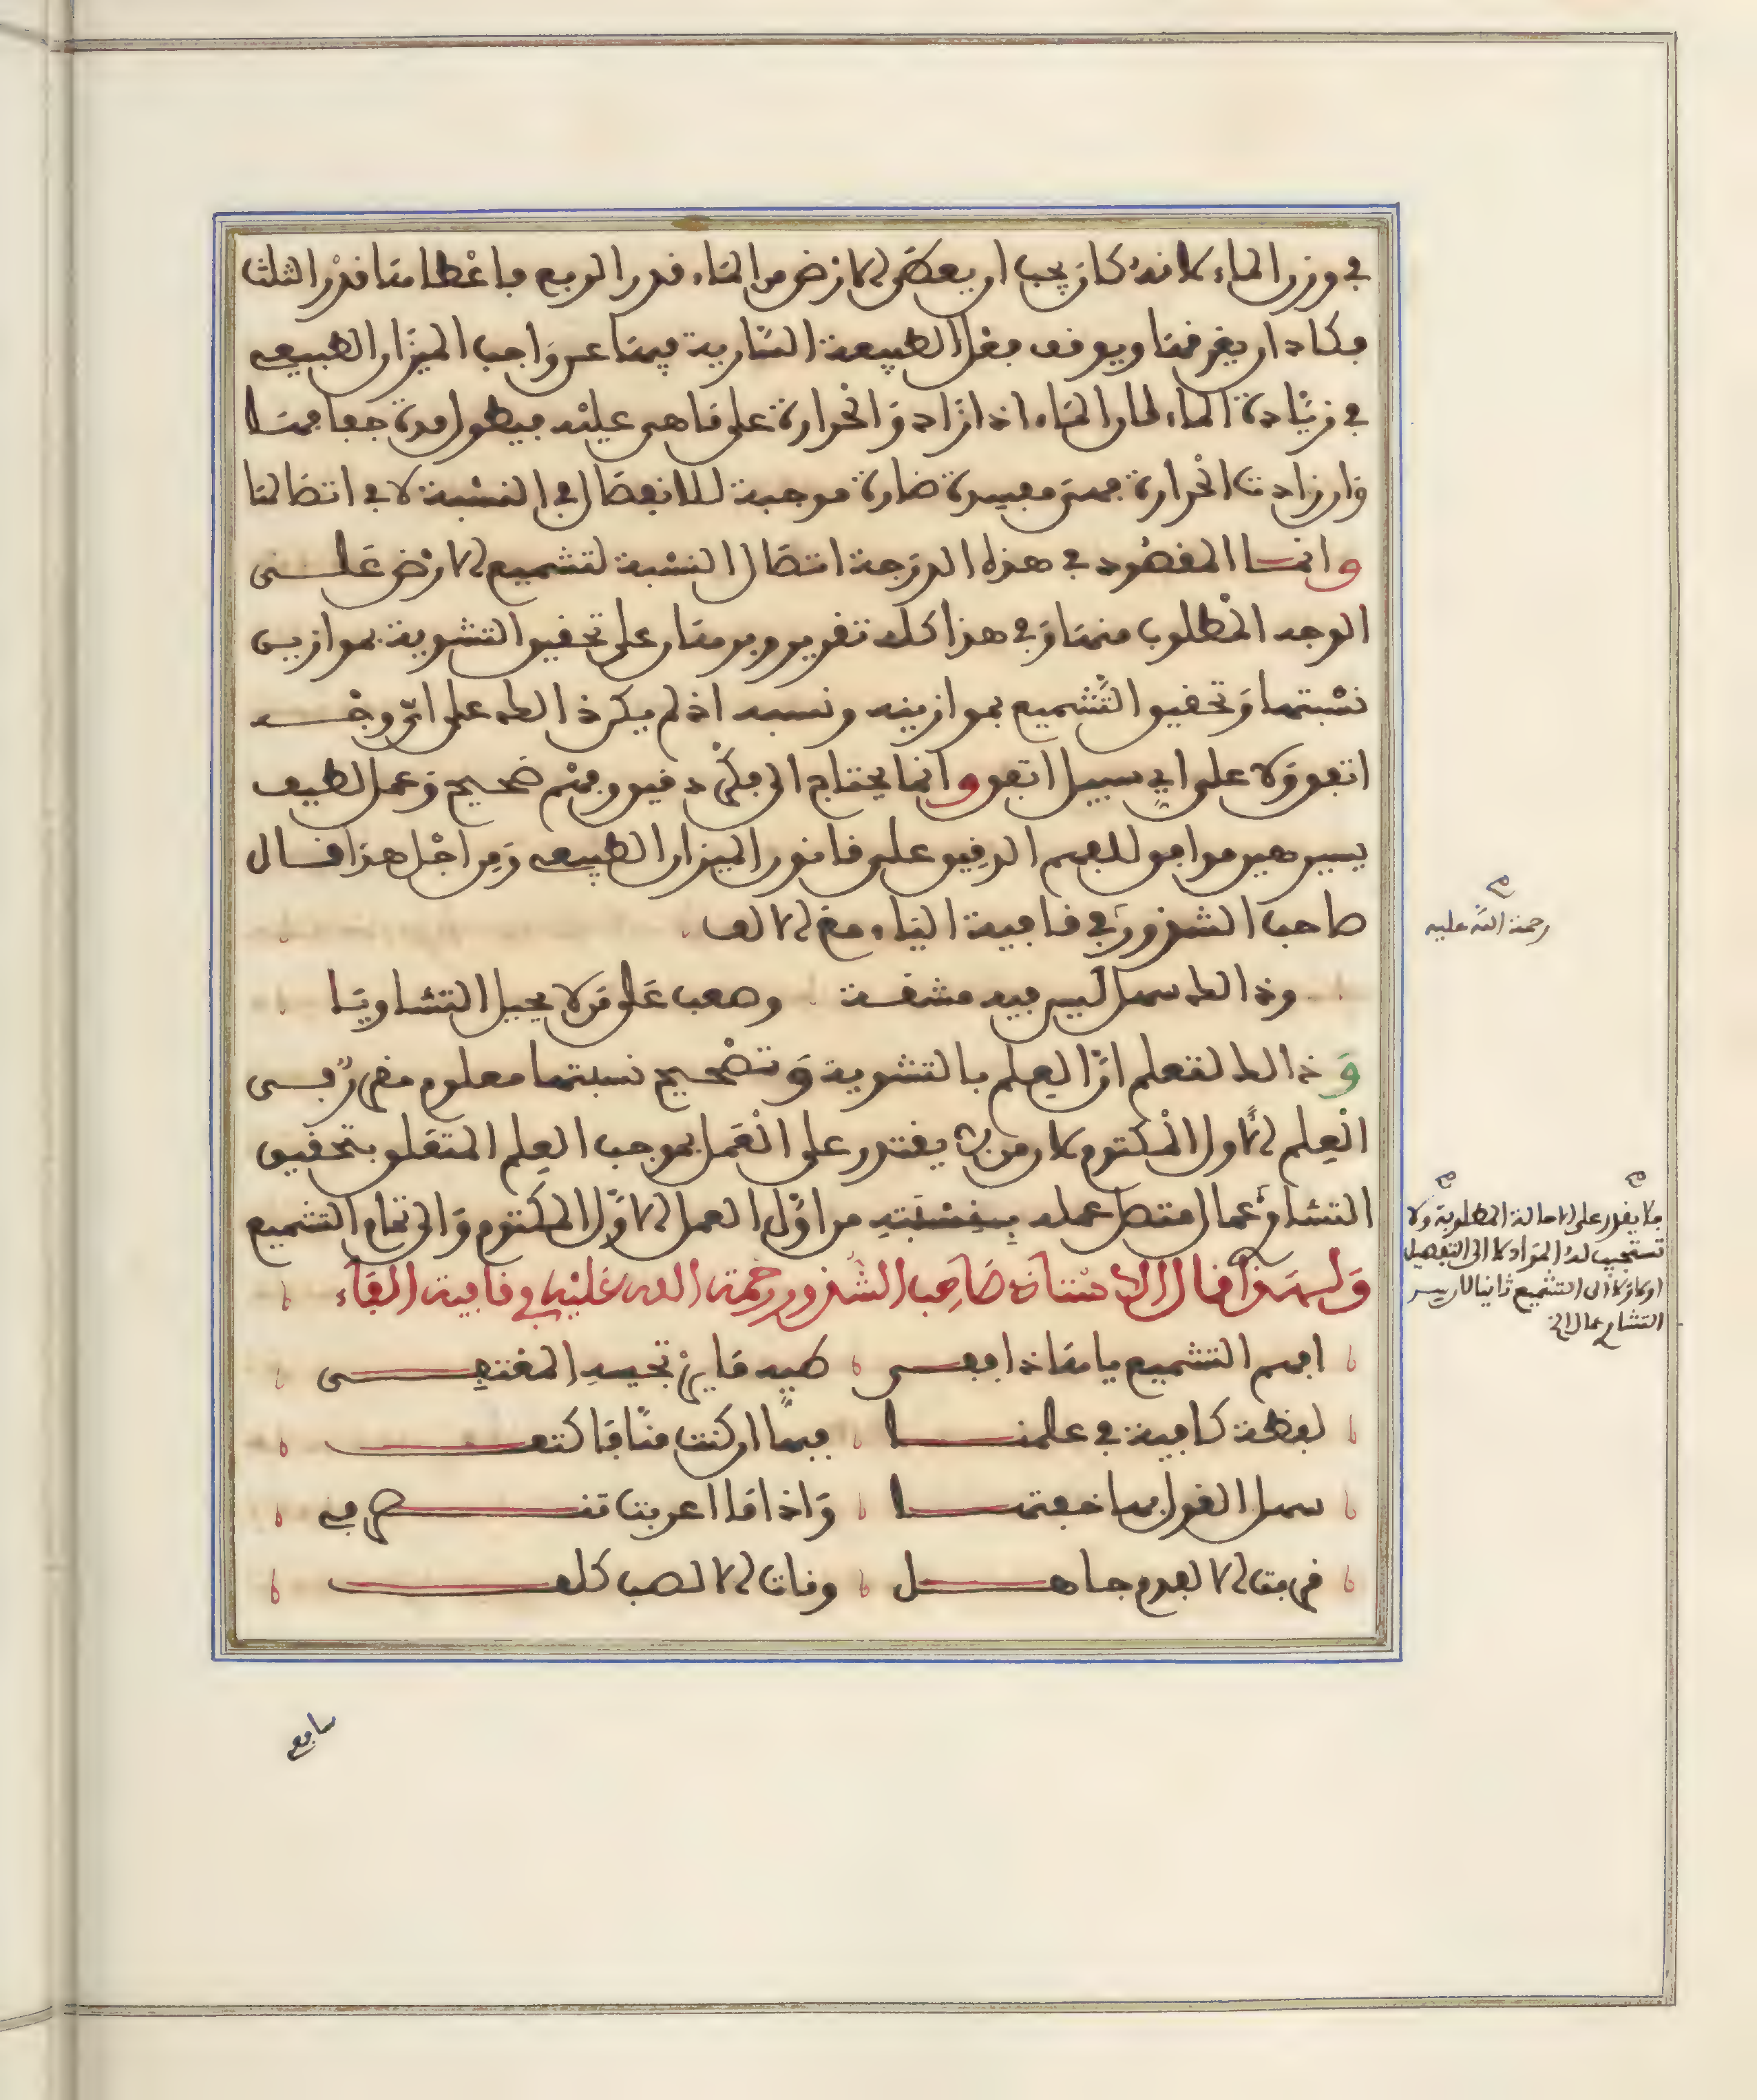 في وزن الماء لانه كان يجب ان يعطى للارض من الماء قدر الربع فاعطاها قدر الثلث
فكاد ان يغرقها ويوقف فعل الطبيعة النارية فيها عن واجب الميزان الطبيعي
في زيادة الماء لان الماء اذا زاد والحرارة على ما هي عليه فيطول مدة جفافها
وان زادت الحرارة فهي مفسدة ضارة موجبة للانفصال في النسبة لا في اتصالها
وانما المقصود في هذه الدرجة اتصال النسبة لتشميع الارض على
الوجه المطلوب منها وفي هذا كله تقرير وبرهان على تحقيق التشوية بموازين
نسبتها وتحقيق التشميع بموازينه ونسبه اذ لم يكن ذالك على اي وجه
اتفق ولا على اي سبيل اتفق وانما يحتاج الى فكر دقيق وفهم صحيح وعمل لطيف
يسير هين موافق للفهم الدقيق على قانون الميزان الطبيعي ومن اجل هذا قال
صاحب الشذور في قافية الياء مع الالف
وذالك سهل ليس فيه مشقة وصعب على من لا يحيل التشاويا
وذالك لتعلم ان العلم بالتشوية وتصحيح نسبتها معلوم من
العلم الاول المكتوم لان من لم يقتدر على العمل بموجب العلم المتعلق بتحقيق
التشاوي عمال متصل عمله بنسبته من اول العمل الاول المكتوم والى تمام التشميع
ولهذا قال الاستاذ صاحب الشذور رحمة الله عليه في قافية الفاء
افهم التشميع يا هاذا ففي طيه ما تحيه المقتفي
لفظة كافية في علمنا فيها ان كنت منا فاكتف
سهل القول بها خفتها واذا ما اعربت
الفدم جاهل وفات الالب كلف
سابع
رحمة الله عليه
فلا يقدر على الاحالة المطلوبة ولا
تستجيب له المواد لا الى التفصيل
اولا ولا الى التشميع ثانيا لان يسر
التشاوي عمال الخ